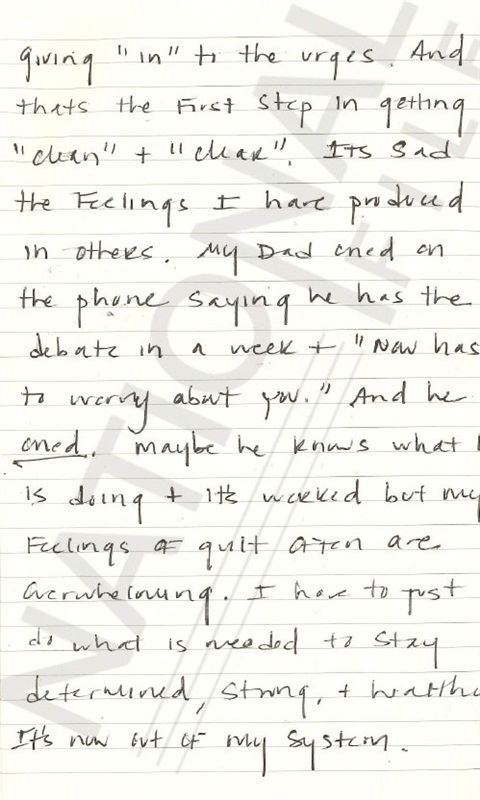 giving "in" to the urges. And
thats the First Step in getting
"clean" + "clear". Its Sad
the Feelings I have produced
in others. My Dad cried on
the phone saying he has the
debate in a week + "Now has
to worry about you." And he
cried. maybe he knows what
is doing + it's worked but my
Feelings of guilt often are
overwhelming. I have to just
do what is needed to stay
determined, strong, + health
It's now out of my system.
NATIONAL
FILE